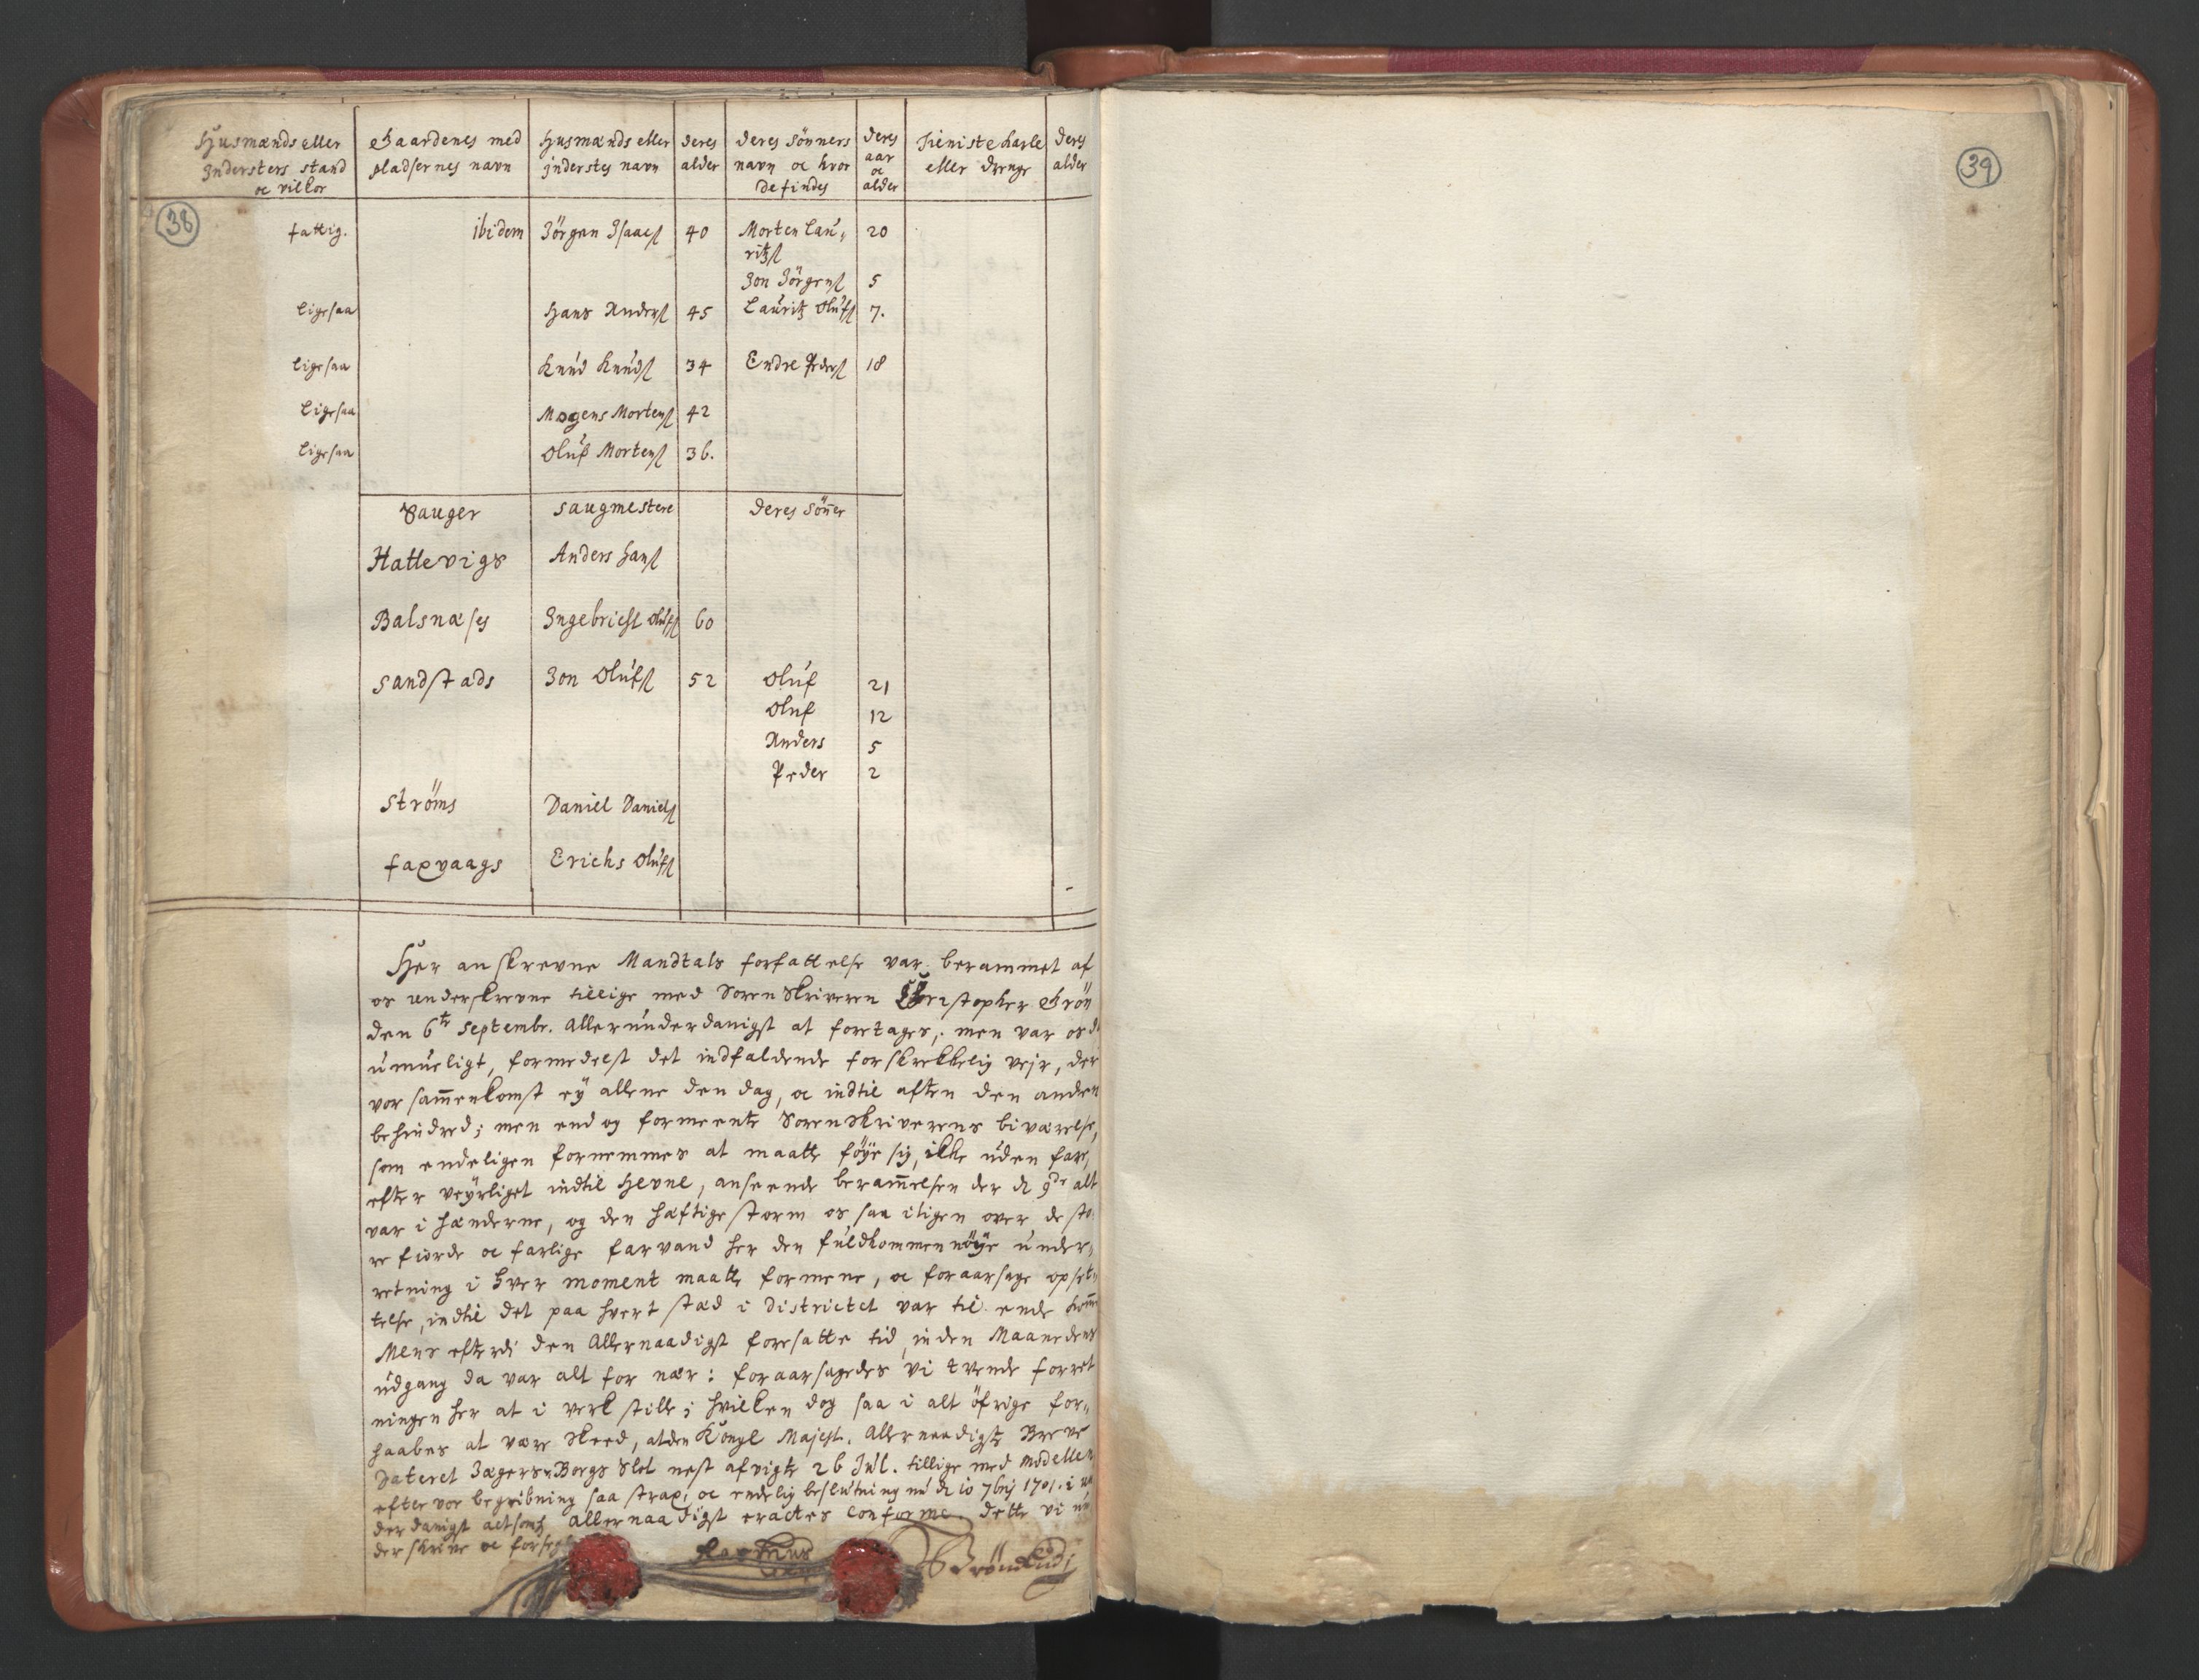 Husmænds eller Indersters stand oc vilkor | Gaardenes med pladsernes navn | Husmænds eller inderstes navn | deres alder | deres Sönners navn oc hvor de findes | deres aar oc alder | Tieniste karle eller drenge | deres alder
38
39
fattig. ibidem Jörgen Isaacs 40 Morten Lau„ 20
ritzs
Jon Jörgens 5
ligesaa Hans Anders 45 Lauritz Olufs 7.
ligesaa Knud Knuds 34 Endre Peders 18
ligesaa Mogens Mortens 42
ligesaa Oluf Mortens 36.
Sauger saugmestere deres Söñer
Hattevigs Anders Hans
Balsnæses Ingebricht Olufs 60
Sandstads Jon Olufs 52 Oluf 21
Oluf 12
Anders 5
Peder 2
Ströms Daniel Daniels
faxvaags Erichs Olufs
Her anskrevne Mandtals forfattelse var berammet af
os underskrevne tillige med Sorenskriveren Christopher Grön
den 6te Septembr. Allerunderdanigst at foretages; men var os d
umueligt, formedelst det indfaldende forskrekkelig vejr, der
vor sam̃enkomst ey allene den dag, oc indtil aften den anden
behindred; men end og formeente Sorenskriverens biværelse,
som endeligen fornemmes at maatte föye sig, ikke uden fare,
efter veyrliget indtil Hevne, anseende beram̃elsen der d 9de alt
var i hænderne, og den hæftige storm os saa iligen over de sto„
re fiorde oc farlige farvand her den fuldkommen nöye under„
retning i hver moment maatte formene, oc foraarsage opset„
telse, indtil det paa hvert stæd i districtet var til ende kom̃
Mens efterdi den Allernaadigst foresatte tid, inden Maanedens
udgang da var alt for nær: foraarsagedes vi tvende forret
ningen her at i verk stille; hvilken dog saa i alt öfrige for„
haabes at være skeed, at den Kongl Majest. Allernaadigste Breve
Dateret Jægersborgs Slot nest afvigte 26 Jul. tillige med modellen
efter vor begribning saa strax, oc endelig beslutning nu d 10 7brj 1701. i un
derdanigst actsomh allernaadigst eractes conforme. Dette vi un
derskrive oc forsegl